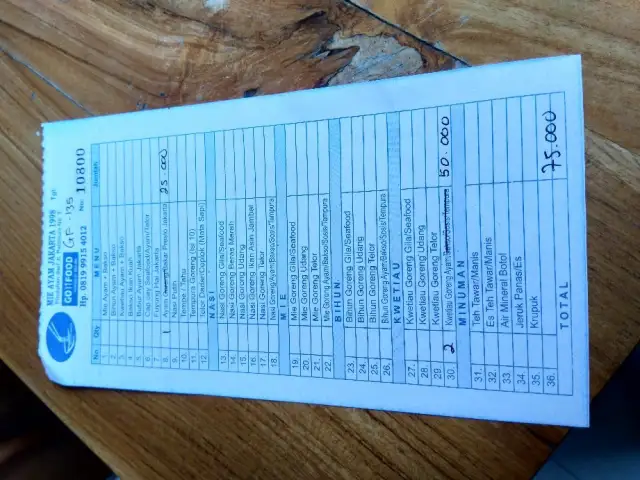 MIE AYAM JAKARTA 1998 Tgl.
GO FOOD GF-135
Hp. 0819 9915 4012 No: 10800
No. Qty. MENU Jumlah
1. Mie Ayam + Bakso
2. Bihun Ayam + Bakso
3. Kwetiau Ayam + Bakso
4. Bubur Ikan
5. Bubur Ayam Jakarta
6. Cap cay Seafood/Ayam/Telor
7. Fuyung Hai Jakarta
8. 1 Ayam Jakarta 25.000
9. Nasi Putih
10. Tahu
11. Tempura Goreng (Isi 10)
12. Telor Dadar/Ceplok (Mata Sapi)
NASI
13. Nasi Goreng Gila/Seafood
14. Nasi Goreng Benas Merah
15. Nasi Goreng Udang
16. Nasi Goreng Ikan Asin Jambal
17. Nasi Goreng Telur
18. Nasi Goreng/Ayam/Bakso/Sosis/Tempura
MIE
19. Mie Goreng Gila/Seafood
20. Mie Goreng Udang
21. Mie Goreng Telor
22. Mie Goreng Ayam/Bakso/Sosis/Tempura
BIHUN
23. Bihun Goreng Gila/Seafood
24. Bihun Goreng Udang
25. Bihun Goreng Telor
26. Bihun Goreng/Ayam/Bakso/Sosis/Tempura
KWETIAU
27. Kwetiau Goreng Gila/Seafood
28. Kwetiau Goreng Udang
29. Kwetiau Goreng Telor
30. 2 Kwetiau Goreng/Ayam/Bakso/Sosis/Tempura 50.000
MINUMAN
31. Teh Tawar/Manis
32. Es Teh Tawar/Manis
33. Air Mineral Botol
34. Jeruk Panas/Es
35. Krupuk
36.
TOTAL 75.000